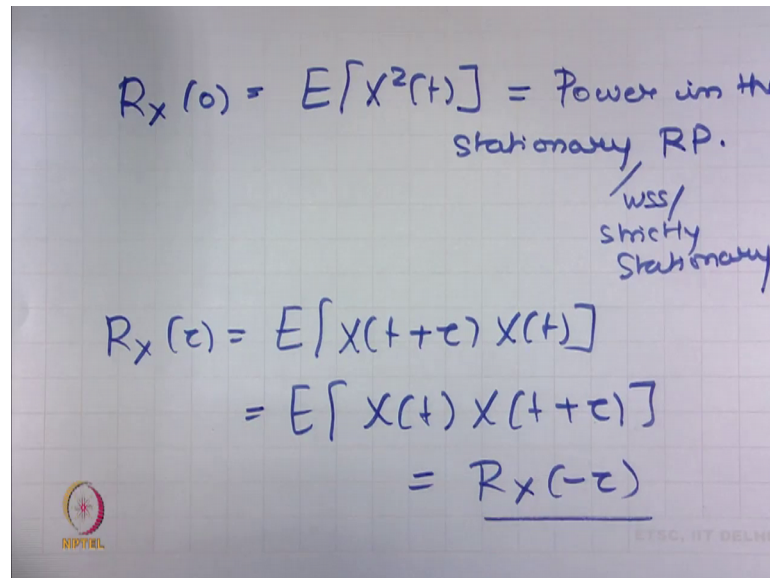 Rx(0) = E[X²(t)] = Power in th
stationary RP.
/WSS/
strictly
Stationary
Rx(τ) = E[X(t+τ) X(t)]
= E[X(t) X(t+τ)]
= Rx(-τ)
NPTEL
ETSC, IIT DELHI